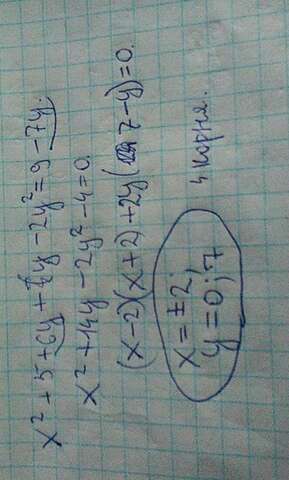 x² + 5 + 6y + y - 2y² = 9 - 7y.
x² + 14y - 2y² - 4 = 0.
(x-2)(x+2) + 2y(7-y) = 0.
x = ±2;
y = 0; 7
4 корня.